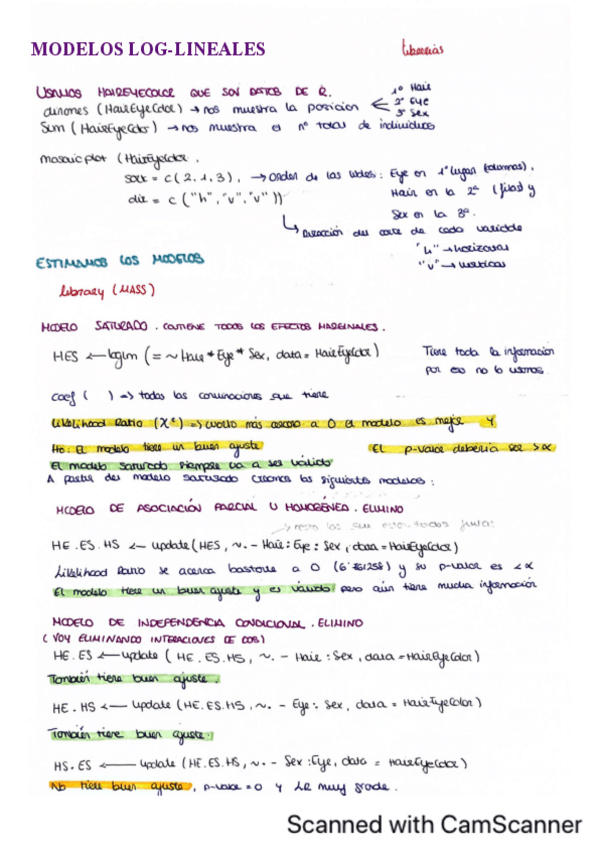 MODELOS LOG-LINEALES
Librerías
USAMOS HAIREYECOLOR QUE SON DATOS DE R.
dimnames (HairEyeColor) → nos muestra la posición
1º Hair
2º Eye
3º Sex
Sum (HairEyeColor) → nos muestra el nº total de individuos
mosaicplot (HairEyeColor,
sort = c( 2, 1, 3), → Orden de las vbles: Eye en 1º lugar (columnas),
dir = c ("h", "v", "v" ))
Hair en la 2ª (filas) y
Sex en la 3ª.
Dirección del corte de cada variable
"h" → horizontal
"v" → vertical
ESTIMAMOS LOS MODELOS
library (MASS)
MODELO SATURADO. CONTIENE TODOS LOS EFECTOS MARGINALES.
HES ← loglm ( = ~ Hair * Eye * Sex, data = HairEyeColor)
Tiene toda la información
por eso no lo usamos
coef ( ) => todas las que tiene
Likelihood Ratio (X²) => cuanto más cercano a 0 el modelo es mejor y
Ho: El modelo tiene un buen ajuste
EL p-valor debería ser > α
El modelo saturado siempre va a ser válido
A partir del modelo saturado creamos los siguientes modelos:
MODELO DE ASOCIACIÓN PARCIAL U HOMOGÉNEA. ELIMINO
HE.ES.HS ← update (HES, ~. - Hair : Eye : Sex, data = HairEyeColor)
Likelihood Ratio se acerca bastante a 0 (6'761258) y su p-valor es < α
El modelo tiene un buen ajuste y es válido pero aún tiene mucha información
MODELO DE INDEPENDENCIA CONDICIONAL. ELIMINO
( VOY ELIMINANDO INTERACIONES DE DOS)
HE.ES ← update ( HE.ES.HS, ~. - Hair : Sex, data = HairEyeColor)
También tiene buen ajuste.
HE.HS ← update (HE.ES.HS, ~. - Eye : Sex, data = HairEyeColor)
También tiene buen ajuste.
HS.ES ← update (HE.ES.HS, ~. - Sex : Eye, data = HairEyeColor)
No tiene buen ajuste, p-valor = 0 y LR muy grande.
Scanned with CamScanner